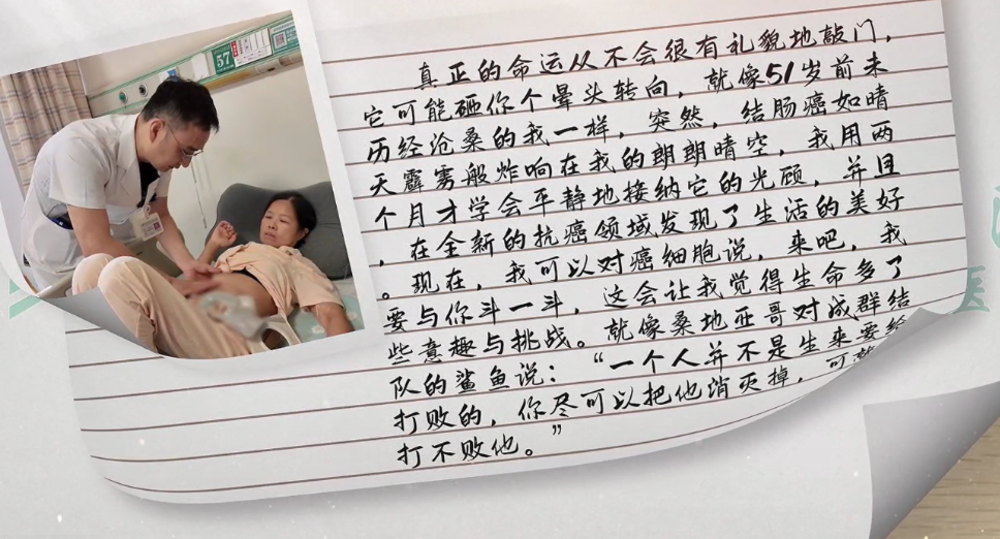 57
真正的命运从不会很有礼貌地敲门，
它可能砸你个晕头转向，就像51岁前未
历经沧桑的我一样，突然，结肠癌如晴
天霹雳般炸响在我的朗朗晴空，我用两
个月才学会平静地接纳它的光顾，并且
，在全新的抗癌领域发现了生活的美好
。现在，我可以对癌细胞说，来吧，我
要与你斗一斗，这会让我觉得生命多了
些意趣与挑战。就像桑地亚哥对成群结
队的鲨鱼说：“一个人并不是生来要给
打败的，你尽可以把他消灭掉，可就
打不败他。”
医